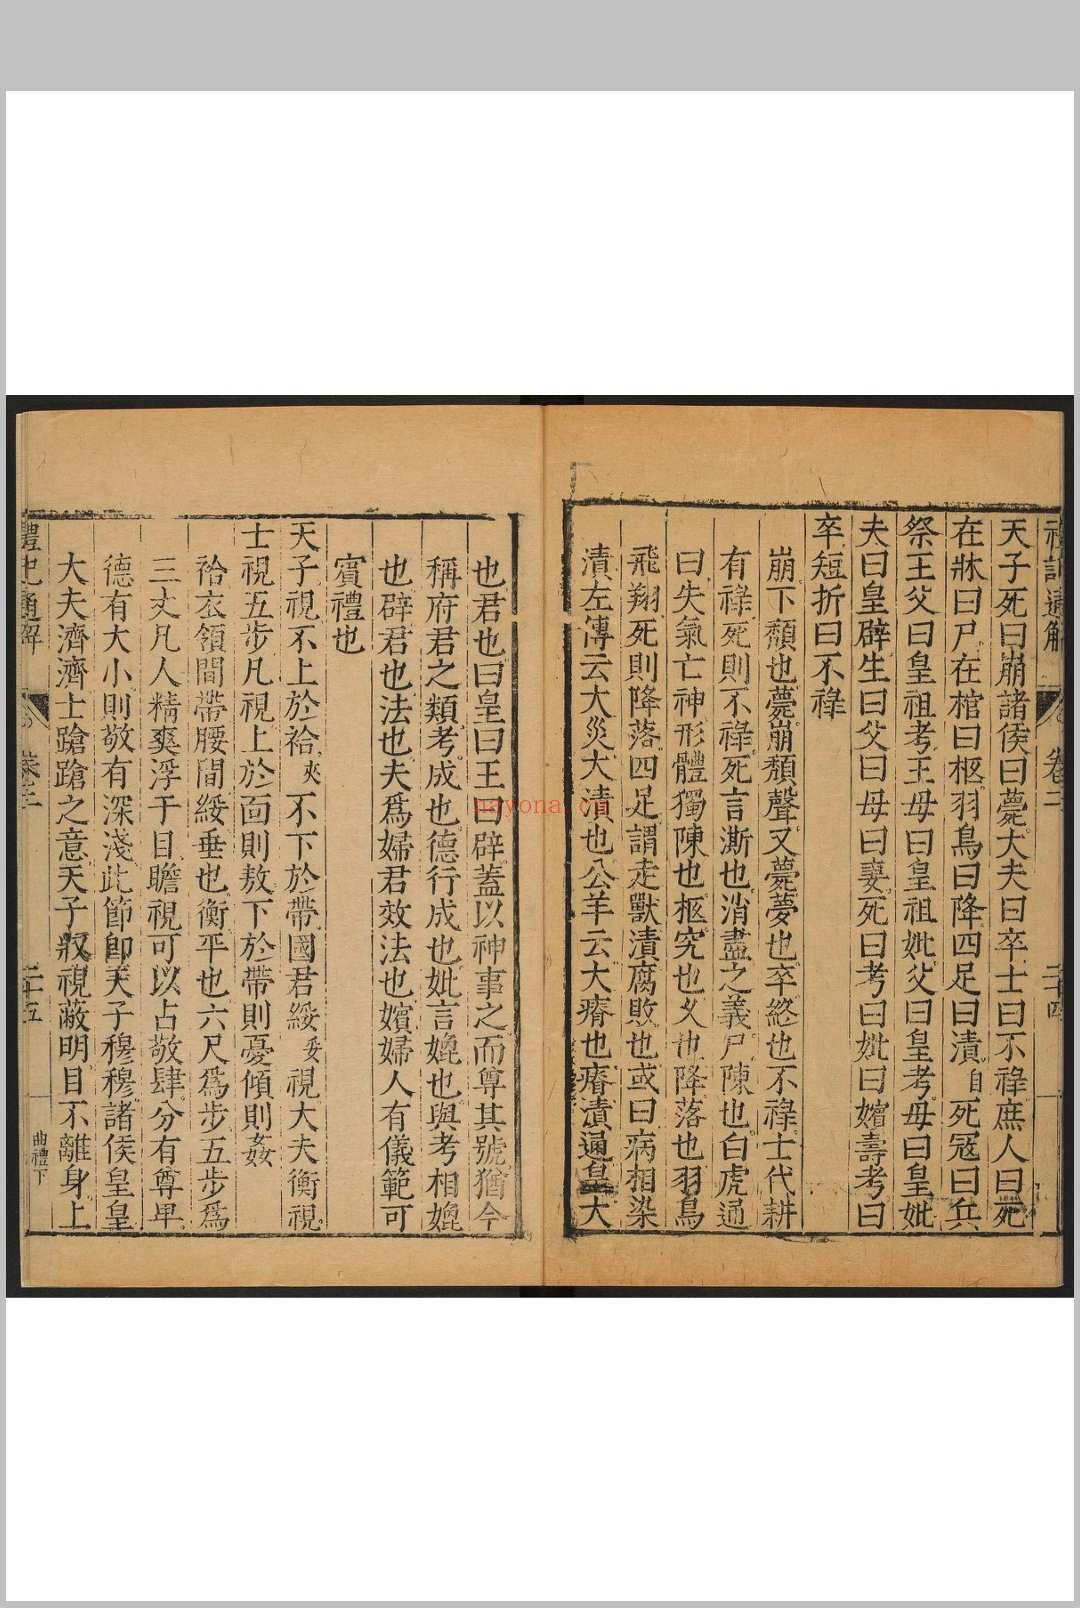 禮記通解
卷二
二十四
天子死曰崩諸侯曰薨大夫曰卒士曰不祿庶人曰死
在牀曰尸在棺曰柩羽鳥曰降四足曰漬自死寇曰兵
祭王父曰皇祖考王母曰皇祖妣父曰皇考母曰皇妣
夫曰皇辟生曰父曰母曰妻死曰考曰妣曰嬪壽考曰
卒短折曰不祿
崩下頽也薨崩頽聲又薨夢也卒終也不祿士代耕
有祿死則不祿死言澌也消盡之義尸陳也白虎通
曰失氣亡神形體獨陳也柩究也久也降落也羽鳥
飛翔死則降落四足謂走獸漬腐敗也或曰病相染
漬左傳云大災大漬也公羊云大瘠也瘠漬通皇大
也君也曰皇曰王曰辟蓋以神事之而尊其號猶今
稱府君之類考成也德行成也妣言媲也與考相媲
也辟君也法也夫爲婦君效法也嬪婦人有儀範可
賓禮也
天子視不上於袷夾不下於帶國君綏妥視大夫衡視
士視五步凡視上於面則敖下於帶則憂傾則姦
袷衣領間帶腰間綏垂也衡平也六尺爲步五步爲
三丈凡人精爽浮于目瞻視可以占敬肆分有尊卑
德有大小則敬有深淺此節卽天子穆穆諸侯皇皇
大夫濟濟士蹌蹌之意天子收視蔽明目不離身上
禮記通解
卷二
二十五
曲禮下
nayona.cn